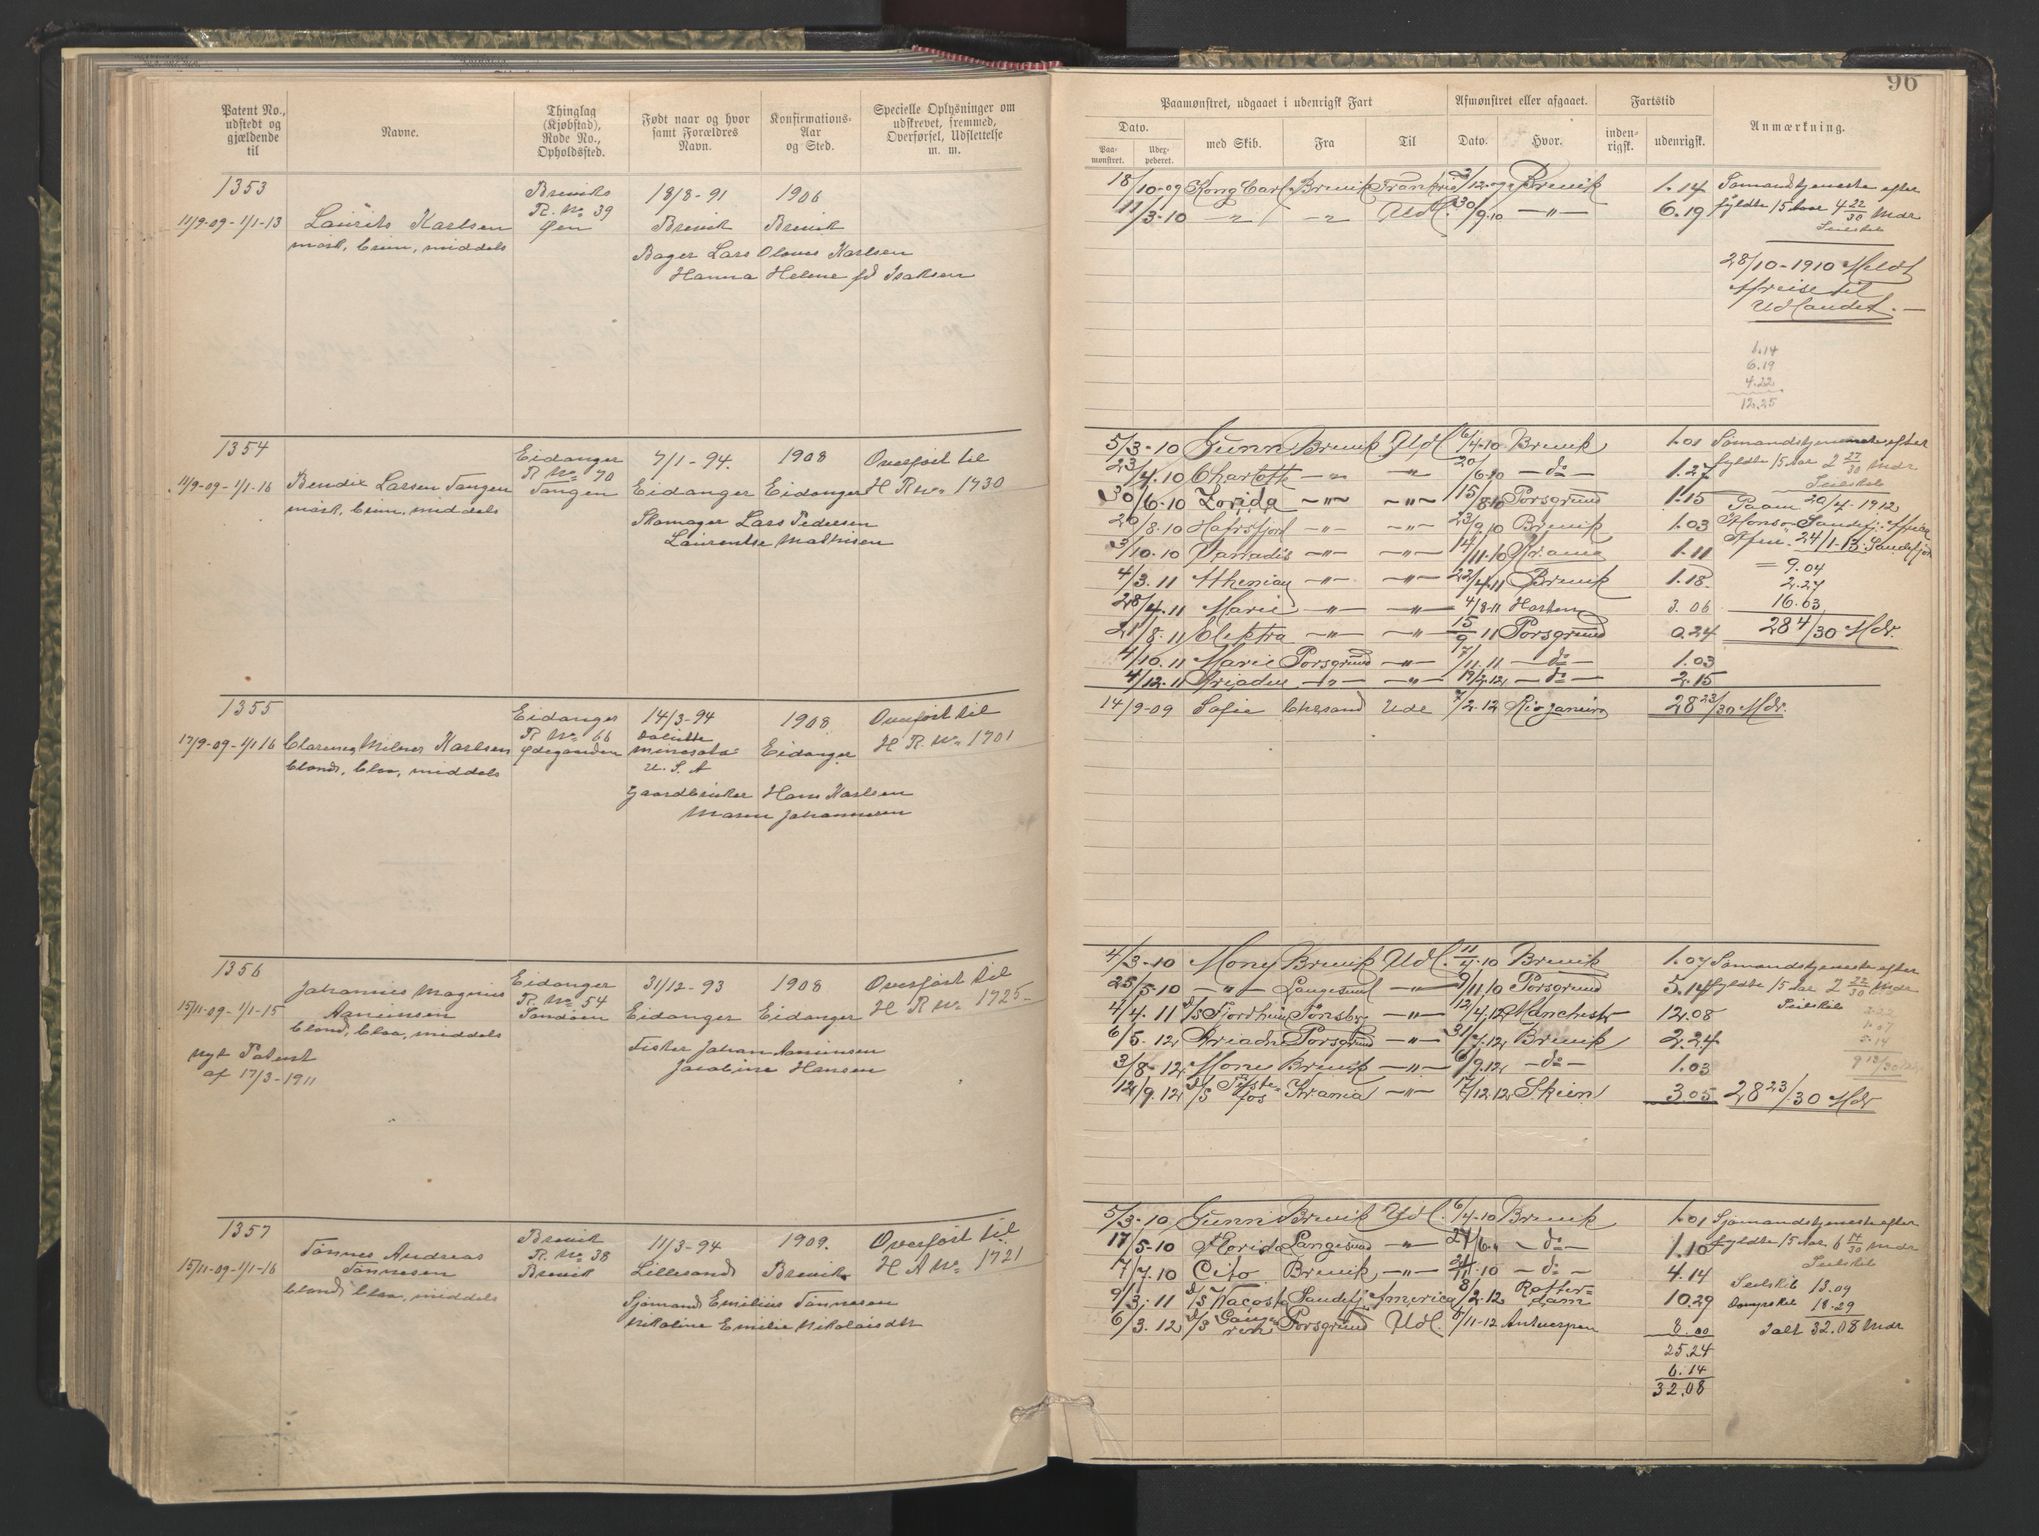 96
Patent No., udstedt og gjældende til
Navne.
Thinglag (Kjøbstad), Rode No., Opholdssted.
Født naar og hvor samt Forældres Navn.
Konfirmations-Aar og Sted.
Specielle Oplysninger om udskrevet, fremmed, Overførsel, Udslettelse m. m.
Paamønstret, udgaaet i udenrigsk Fart
Afmønstret eller afgaaet.
Fartstid
Dato.
Paa-mønstret.
Udex-pederet.
med Skib.
Fra
Til
Dato.
Hvor.
inden-rigsk.
udenrigsk.
Anmærkning.
1353
11/9-09-1/1-13
Laurits Karlsen
mørk, brun, middels
Breviks
R. No 39
Øen
18/8-91
Brevik
1906
Brevik
Bager Lars Olaves Karlsen
Hanna Helene fd Isaksen
18/10-09 Kong Carl Brevik Frankrig 3/12-09 Brevik 1.14
11/3-10 -"- -"- Udl. 30/9-10 -"- 6.19
Sømandstjeneste efter
fyldte 15 Aar 4 22/30 Mdr
Seilskib
28/10-1910 Meldt
Afreise til
Udlandet.
1.14
6.19
4.22
12.25
1354
11/9-09-1/1-16
Bendix Larsen Tangen
mørk, brun, middels
Eidanger
R. No 70
Tangen
7/1-94.
Eidanger
1908
Eidanger
Overført til
H R No 1730
Skomager Lars Pedersen
Laurentse Mathisen
5/3-10 Gunn Brevik Udl 6/4-10 Brevik 1.01
23/4.10 Charloth -"- -"- 20/6-10 -do- 1.27
30/6-10 Zorida -"- -"- 15/8-10 Porsgrund 1.15
20/8.10 Hafrsfjord -"- -"- 23/9.10 Brevik 1.03
3/10.10 Vanadis -"- -"- 14/11.10 1.11
4/3.11 -"- -"- 22/4.11 Brevik 1.18
28/4.11 Marie -"- -"- 4/8-11 3.06
21/8.11 Elektra -"- -"- 15/9 11 Porsgrund 0.24
4/10.11 Marie Porsgrund -"- 7/11.11 -do- 1.03
4/12.11 Ariadne -"- -"- 19/2.12 -do- 2.15
Sømandstjeneste efter
fyldte 15 Aar 2 27/30 Mdr
Seilskib
Paam 20/4-1912
24/1-13. Sandefjord
= 9.04
2.27
16.63
28 4/30 Mdr.
1355
17/9-09-1/1 16
Clarence Milner Karlsen
blond, blaa, middels
Eidanger
R. No 66
Ødegaarden
14/3-94
U. S. A
1908
Eidanger
Overført til
H R. No 1701
Gaardbruker Hans Karlsen
Maren Johannesen
14/9-09 Sofie Chrsand Udl 7/2.12 Rio Janeiro 28 23/30 Mdr.
1356
15/11-09-1/1-15
Johannes Magnus
Aanonsen
blond, blaa, middels
Nyt Patent
af 17/3-1911
Eidanger
R. No 54
Sandøen
31/12-93
Eidanger
1908
Eidanger
Overført til
H R No 1725
Fisker Johan Aanonsen
Jacobine Hansen
4/3-10 Mony Brevik Udl. 11/4.10 Brevik 1.07
25/5-10 -"- Langesund -"- 9/11.10 Porsgrund 5.14
4/4.11 D/S Fjordheim Tönsberg -"- 12/4.12 Manchester 12.08
6/5.12 Ariadne Porsgrund -"- 31/7.12 Brevik 2.24
3/8-12 Mone Brevik -"- 6/9.12 -do- 1.03
12/9.12 D/S Tyssefos Krania -"- 17/12.12 Skien 3.05
Sømandstjeneste efter
fyldte 15 Aar 2 22/30 Mdr
Seilskib
2.22
1.07
5.14
9 13/30 Mdr
28 23/30 Mdr
1357
15/11-09-1/1-16
Tönnes Andreas
Tönnesen
blond, blaa, middels
Brevik
R. No 38
Brevik
11/3-94
Lillesand
1909.
Brevik
Overført til
H R No 1721
Sjømand Emilius Tönnesen
Nikoline Emilie Nikolaisdtr
5/3-10 Gunn Brevik Udl. 6/4-10 Brevik 1.01
17/5-10 Florida Langesund -"- -do- 1.10
7/7.10 Cito Brevik -"- -do- 4.14
9/3.11 D/S Sandefj America 8/2.12 Rotterdam 10.29
6/3.12 D/S Porsgrund Udl. 6/11-12 Antwerpen 8.00
25.24
6.14
32.08
Sjømandstjeneste efter
fyldte 15 Aar 6 14/30 Mdr
Seilskib
Seilskib 13.09
Dampskib 18.29
Ialt 32.08 Mdr